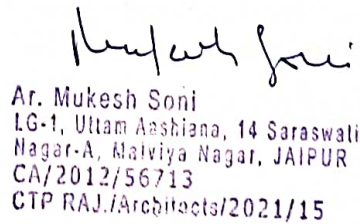 Mukesh Soni
Ar. Mukesh Soni
LG-1, Uttam Aashiana, 14 Saraswati
Nagar-A, Malviya Nagar, JAIPUR
CA/2012/56713
CTP RAJ./Architects/2021/15